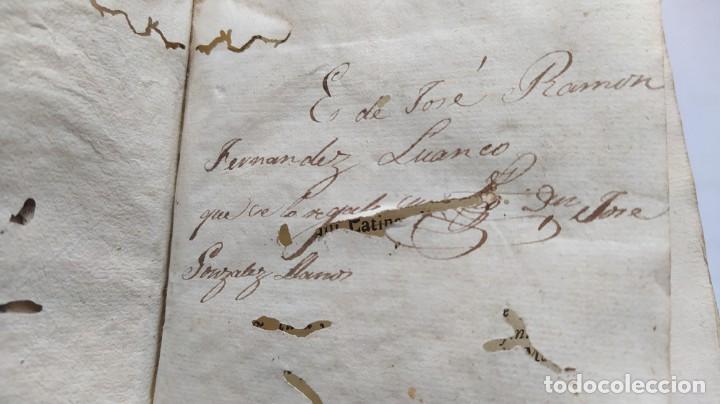 Es de José Ramon
Fernandez Luanco
que se lo regalo Dn Jose
Gonzalez Llanos
Latin
todocoleccion
todocoleccion.net